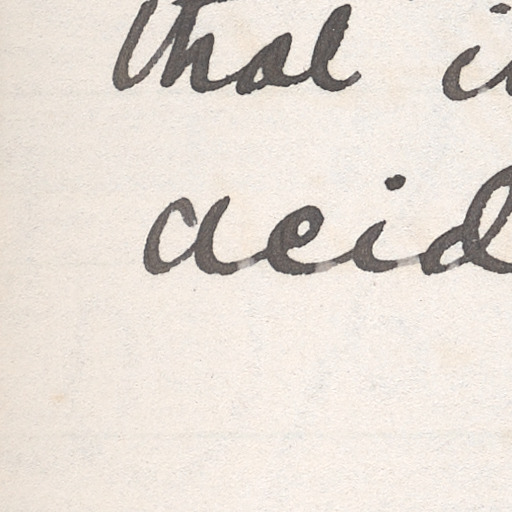 that i
acid